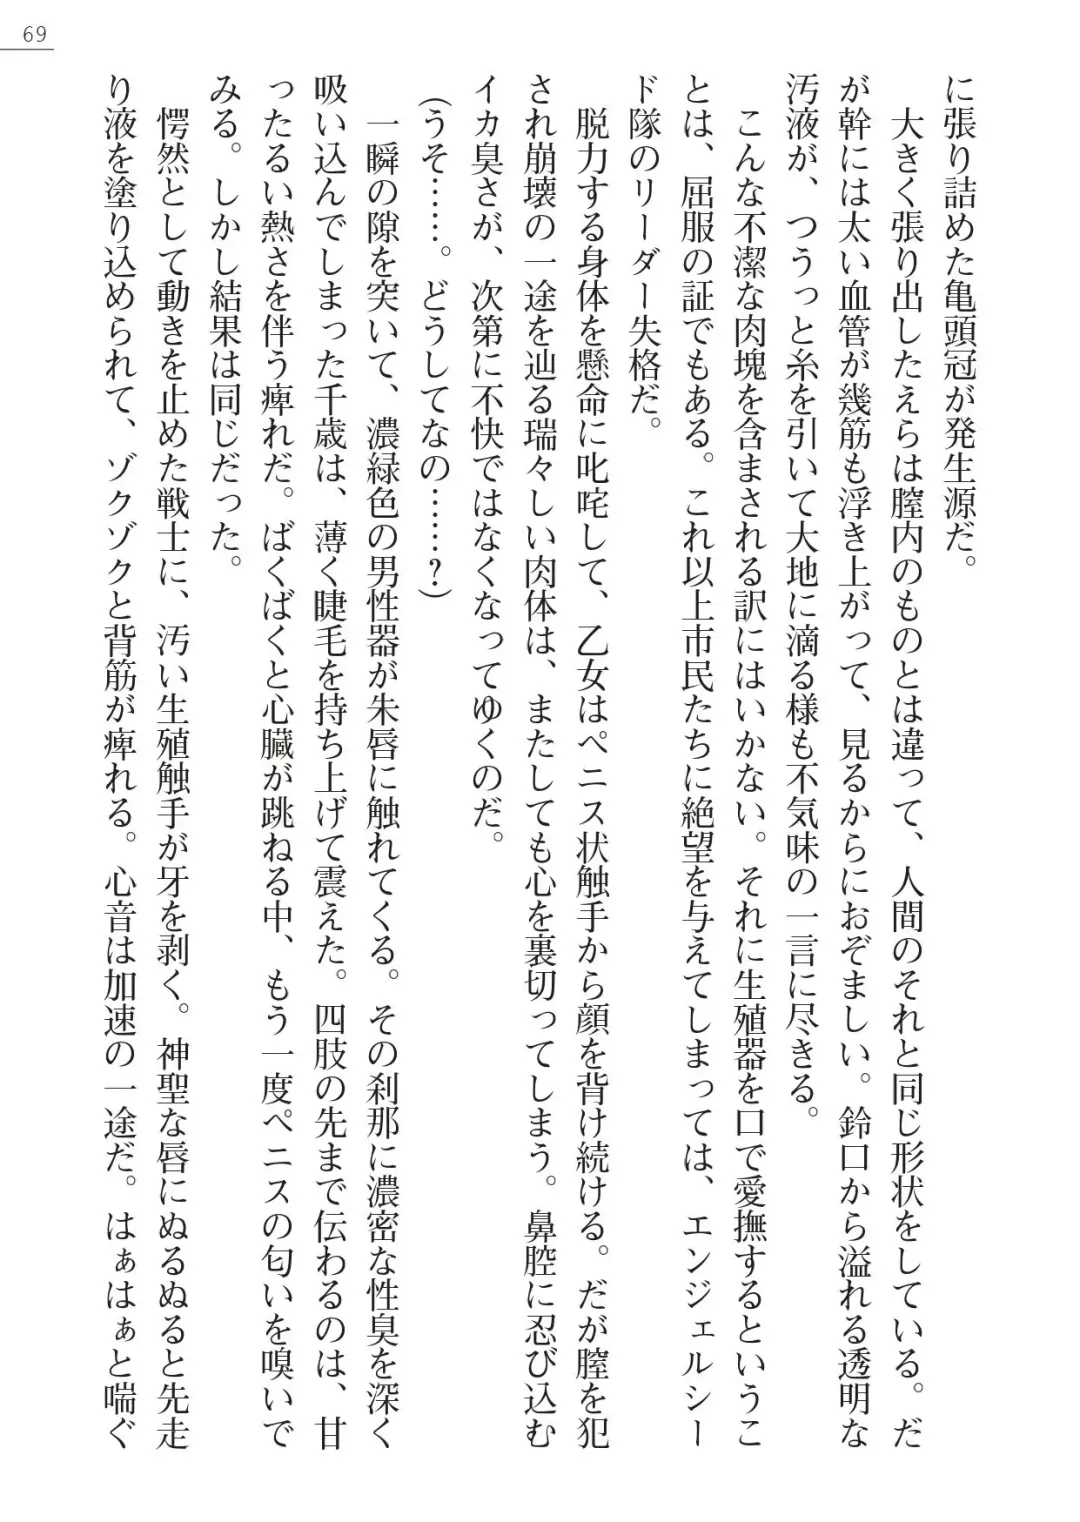 69
に張り詰めた亀頭冠が発生源だ。
大きく張り出したえらは膣内のものとは違って、人間のそれと同じ形状をしている。だ
が幹には太い血管が幾筋も浮き上がって、見るからにおぞましい。鈴口から溢れる透明な
汚液が、つうっと糸を引いて大地に滴る様も不気味の一言に尽きる。
こんな不潔な肉塊を含まされる訳にはいかない。それに生殖器を口で愛撫するというこ
とは、屈服の証でもある。これ以上市民たちに絶望を与えてしまっては、エンジェルシー
ド隊のリーダー失格だ。
脱力する身体を懸命に叱咤して、乙女はペニス状触手から顔を背け続ける。だが膣を犯
され崩壊の一途を辿る瑞々しい肉体は、またしても心を裏切ってしまう。鼻腔に忍び込む
イカ臭さが、次第に不快ではなくなってゆくのだ。
(うそ……。どうしてなの……?)
一瞬の隙を突いて、濃緑色の男性器が朱唇に触れてくる。その刹那に濃密な性臭を深く
吸い込んでしまった千歳は、薄く睫毛を持ち上げて震えた。四肢の先まで伝わるのは、甘
ったるい熱さを伴う痺れだ。ばくばくと心臓が跳ねる中、もう一度ペニスの匂いを嗅いで
みる。しかし結果は同じだった。
愕然として動きを止めた戦士に、汚い生殖触手が牙を剥く。神聖な唇にぬるぬると先走
り液を塗り込められて、ゾクゾクと背筋が痺れる。心音は加速の一途だ。はぁはぁと喘ぐ